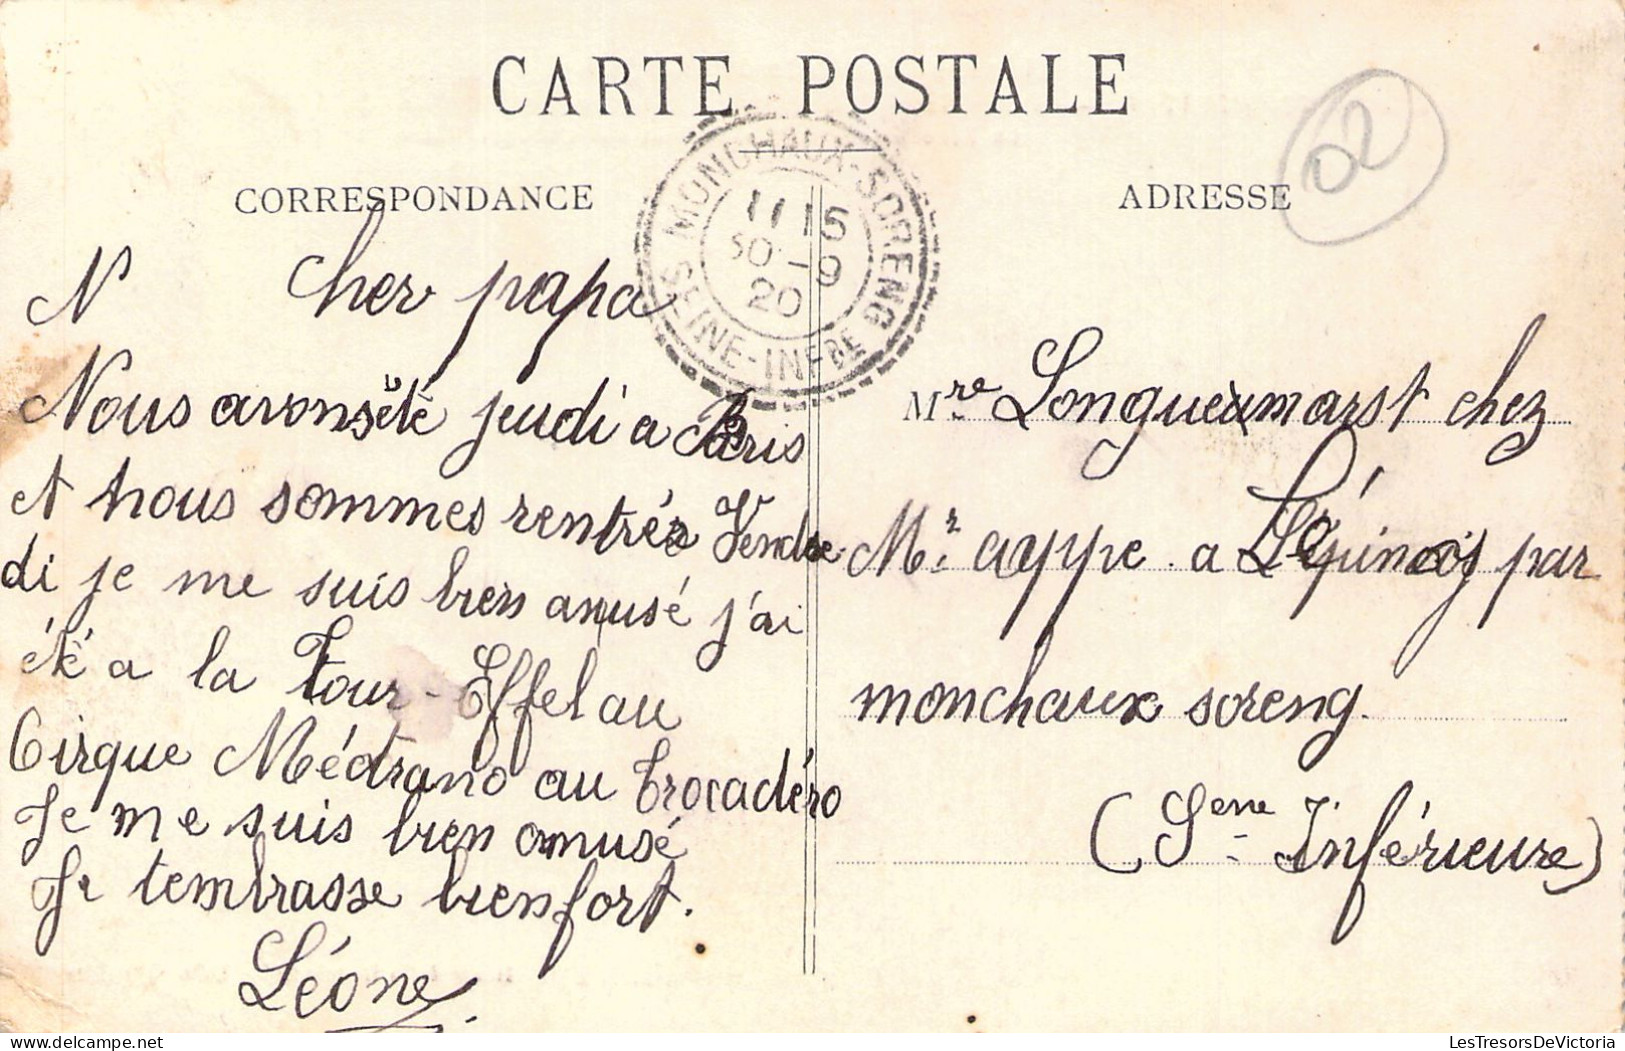 CARTE POSTALE
CORRESPONDANCE
ADRESSE
02
MONCHAUX-SORENG
11 15
30 - 9
20
SEINE-INFRE
N Cher papa
Nous avons été jeudi a Paris
et nous sommes rentrés Vendre
di je me suis bien amusé j'ai
été a la Tour-Effel au
Cirque Médrano au Trocadéro
Je me suis bien amusé
Je tembrasse bien fort.
Léone
Mre Longuemarst chez
Mr appe a Lépinoy par
monchaux soreng.
(Sene Inférieure)
LesTresorsDeVictoria